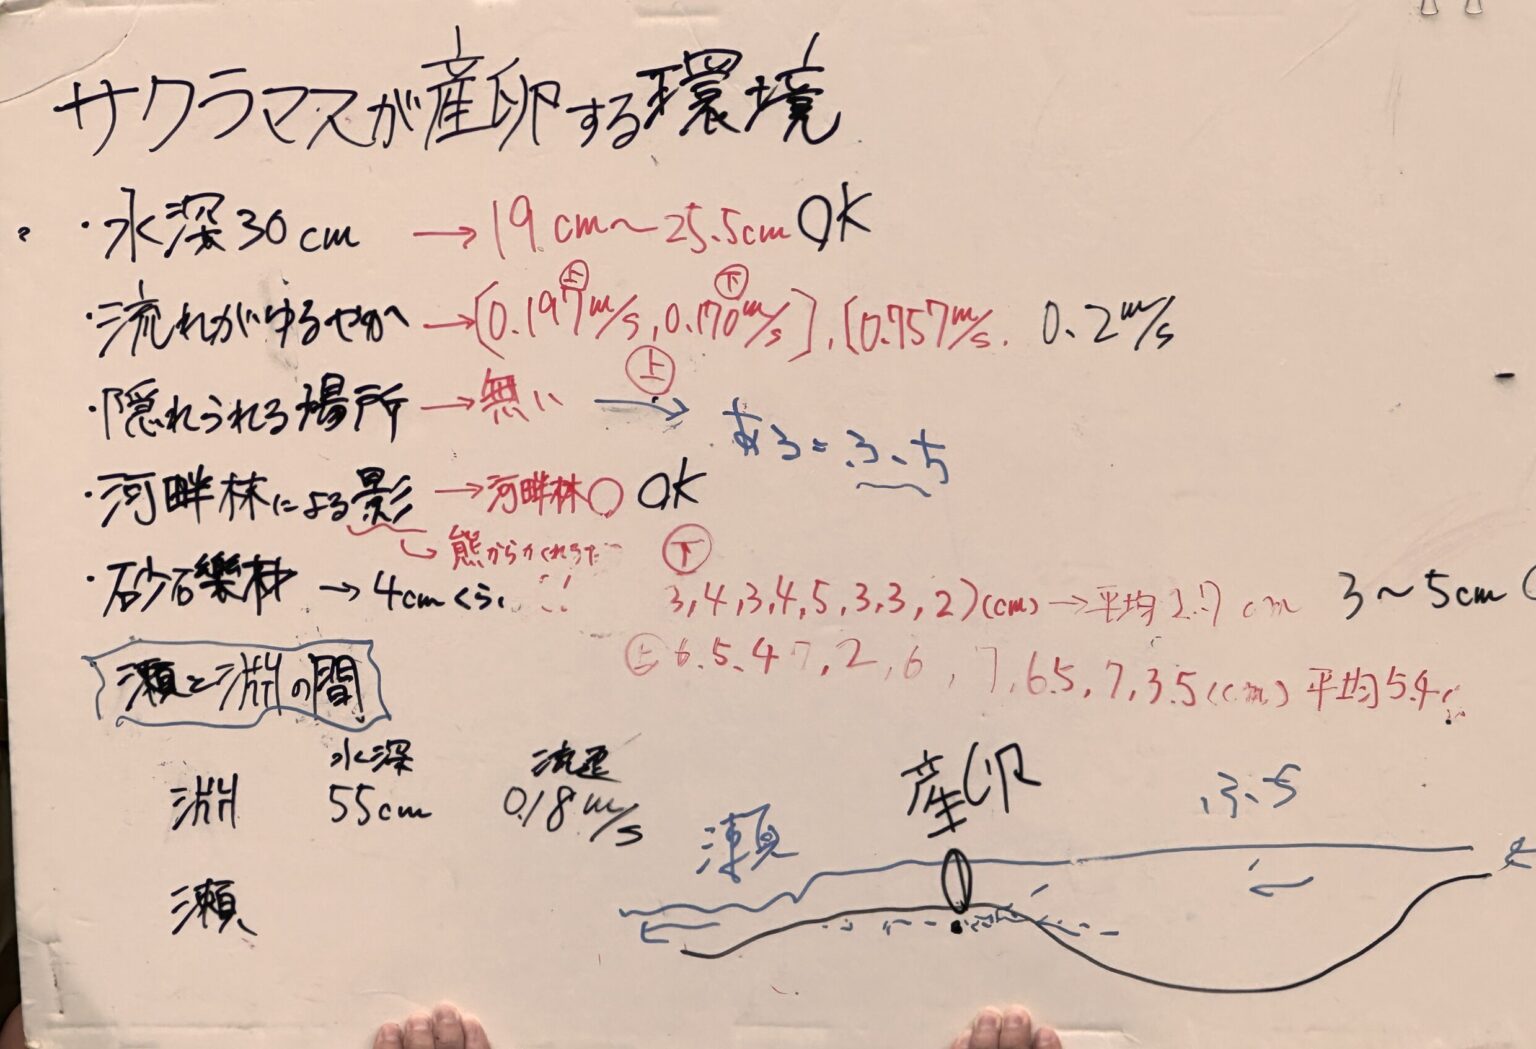 サクラマスが産卵する環境
・水深30cm → 19cm～25.5cm OK
上 下
・流れがゆるやか → [0.197m/s, 0.170m/s], [0.757m/s. 0.2m/s
上
・隠れられる場所 → 無い → ある=ふち
・河畔林による影 → 河畔林○ OK
熊からかくれる
下
・砂石礫材 → 4cmくらい 3,4,3,4,5,3,3,2)(cm) → 平均 cm 3～5cm
上 6.5.4 7,2,6, 7,6.5,7,3.5(cm) 平均5.4
瀬と淵の間
水深 流速
淵 55cm 0.18m/s
産卵
ふち
瀬
瀬